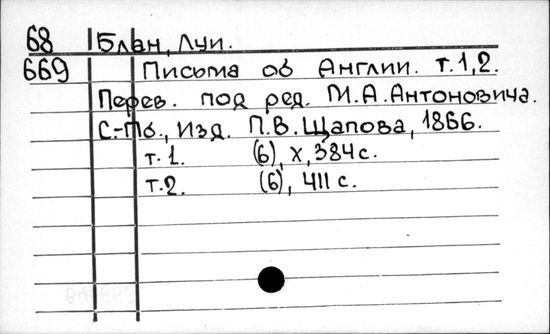 68 Блан, Луи.
669 Письма об Англии. т.1,2.
Перев. под ред. М.А.Антоновича.
С.-Пб., изд. П.В.Щапова, 1866.
т.1. (6), X, 384 с.
т.2. (6), 411 с.